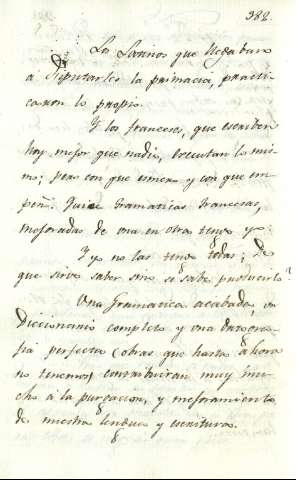 382.
Los Latinos que llegaban
á disputarles la primacia, practi
caron lo propio.
Y los franceses, que escriben
hoy mejor que nadie, executan lo mis
mo; pero con que esmero y con que em
peño. Gramaticas francesas,
mejoradas de una en otra tengo yo.
Y yo no las tengo todas; De
que sirve saber sino se sabe producirlo?
Una Gramatica acabada, un
Diccionario completo y una
fia perfecta (obras que hasta ahora
no tenemos) contribuiran muy mu
cho á la purgacion, y mejoramiento
de nuestra lengua y escritura.